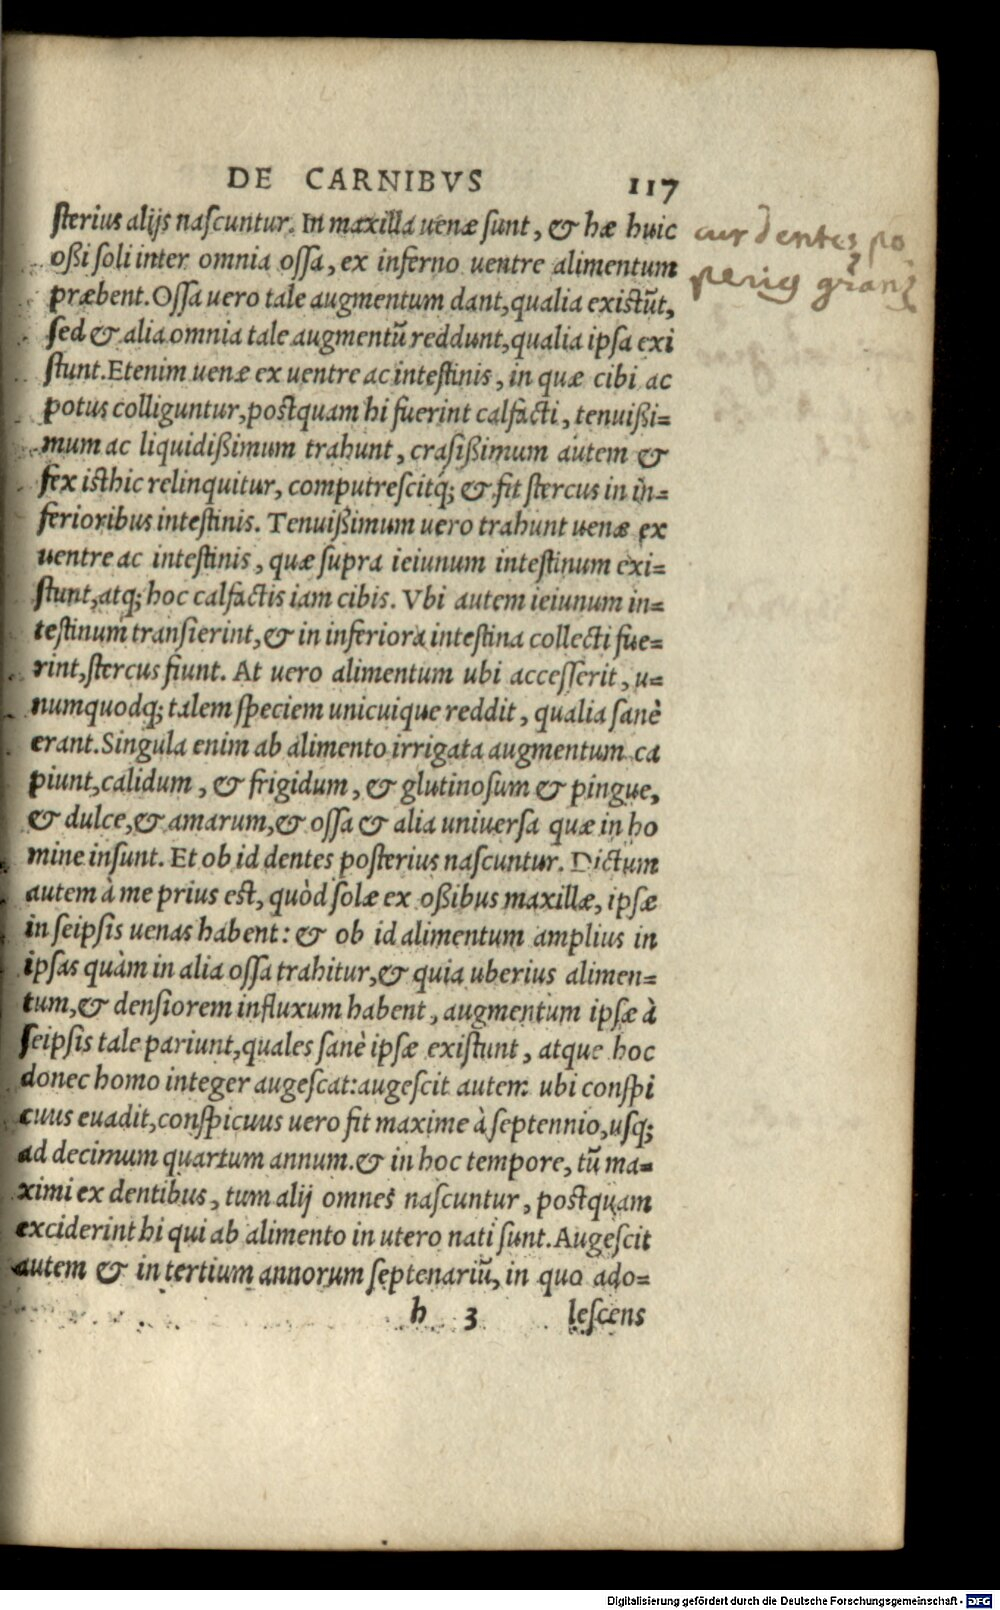 DE CARNIBVS 117
ſterius alijs naſcuntur. In maxilla uenæ ſunt, & hæ huic
oßi ſoli inter omnia oſſa, ex inferno uentre alimentum
præbent. Oſſa uero tale augmentum dant, qualia existūt,
ſed & alia omnia tale augmentū reddunt, qualia ipſa exi
ſtunt. Etenim uenæ ex uentre ac inteſtinis, in quæ cibi ac
potus colliguntur, postquam hi fuerint calfacti, tenuißi=
mum ac liquidißimum trahunt, craſißimum autem &
fex isthic relinquitur, computreſcitq́; & fit ſtercus in in=
ferioribus inteſtinis. Tenuißimum uero trahunt uenæ ex
uentre ac inteſtinis, quæ ſupra ieiunum inteſtinum exi=
ſtunt, atq; hoc calfactis iam cibis. Vbi autem ieiunum in=
teſtinum tranſierint, & in inferiora inteſtina collecti fue=
rint, ſtercus fiunt. At uero alimentum ubi acceſſerit, u=
numquodq; talem ſpeciem unicuique reddit, qualia ſanè
erant. Singula enim ab alimento irrigata augmentum ca
piunt, calidum, & frigidum, & glutinoſum & pingue,
& dulce, & amarum, & oſſa & alia uniuerſa quæ in ho
mine inſunt. Et ob id dentes poſterius naſcuntur. Dictum
autem à me prius est, quòd ſolæ ex oßibus maxillæ, ipſæ
in ſeipſis uenas habent: & ob id alimentum amplius in
ipſas quàm in alia oſſa trahitur, & quia uberius alimen=
tum, & denſiorem influxum habent, augmentum ipſæ à
ſeipſis tale pariunt, quales ſanè ipſæ exiſtunt, atque hoc
donec homo integer augeſcat: augeſcit autem ubi conſpi
cuus euadit, conſpicuus uero fit maxime à ſeptennio, uſq;
ad decimum quartum annum. & in hoc tempore, tū ma=
ximi ex dentibus, tum alij omnes naſcuntur, postquam
exciderint hi qui ab alimento in utero nati ſunt. Augeſcit
autem & in tertium annorum ſeptenariū, in quo ado=
h 3 leſcens
cur dentes po